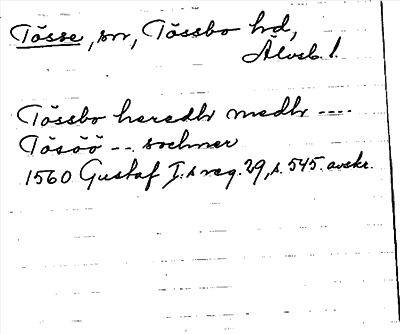 Tösse, sn, Tössbo hd,
Älvsb. l.
Tössbo heredh medh ----
Tösöö -- sochner
1560 Gustaf I:s reg. 29, s. 545. avskr.